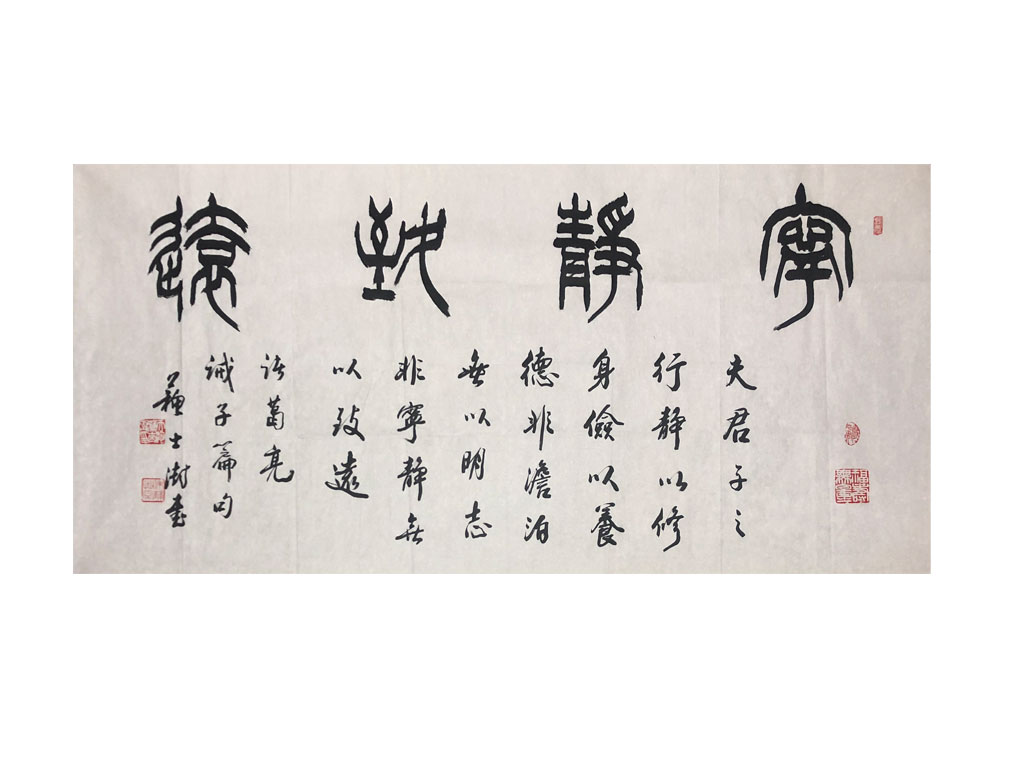 寧靜致遠
夫君子之
行静以修
身儉以養
德非澹泊
無以明志
非寧静無
以致遠
诸葛亮
诫子篇句
蘇士澍書